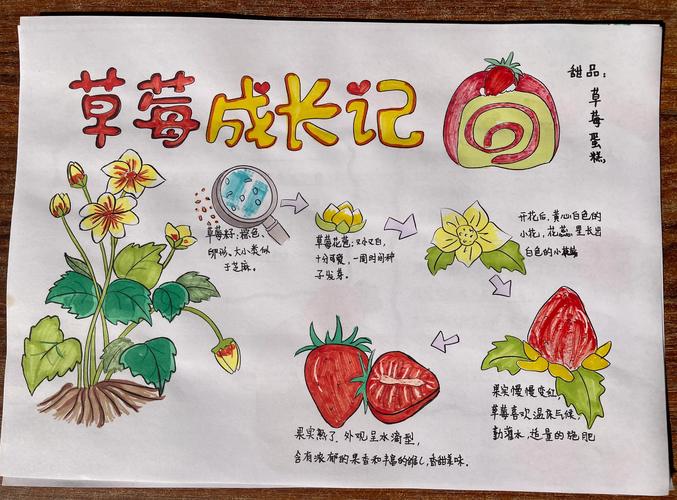 草莓成长记
甜品：
草莓蛋糕
草莓籽：棕色、
卵形、大小类似
于芝麻。
草莓花苞：又小又白，
十分可爱，一周时间种
子发芽。
开花后，黄心白色的
小花，花蕊里长出
白色的小
果实慢慢变红，
草莓喜欢温床气候，
勤灌水，适量的施肥
果实熟了，外观呈水滴型，
含有浓郁的果香和丰富的维C，香甜美味。